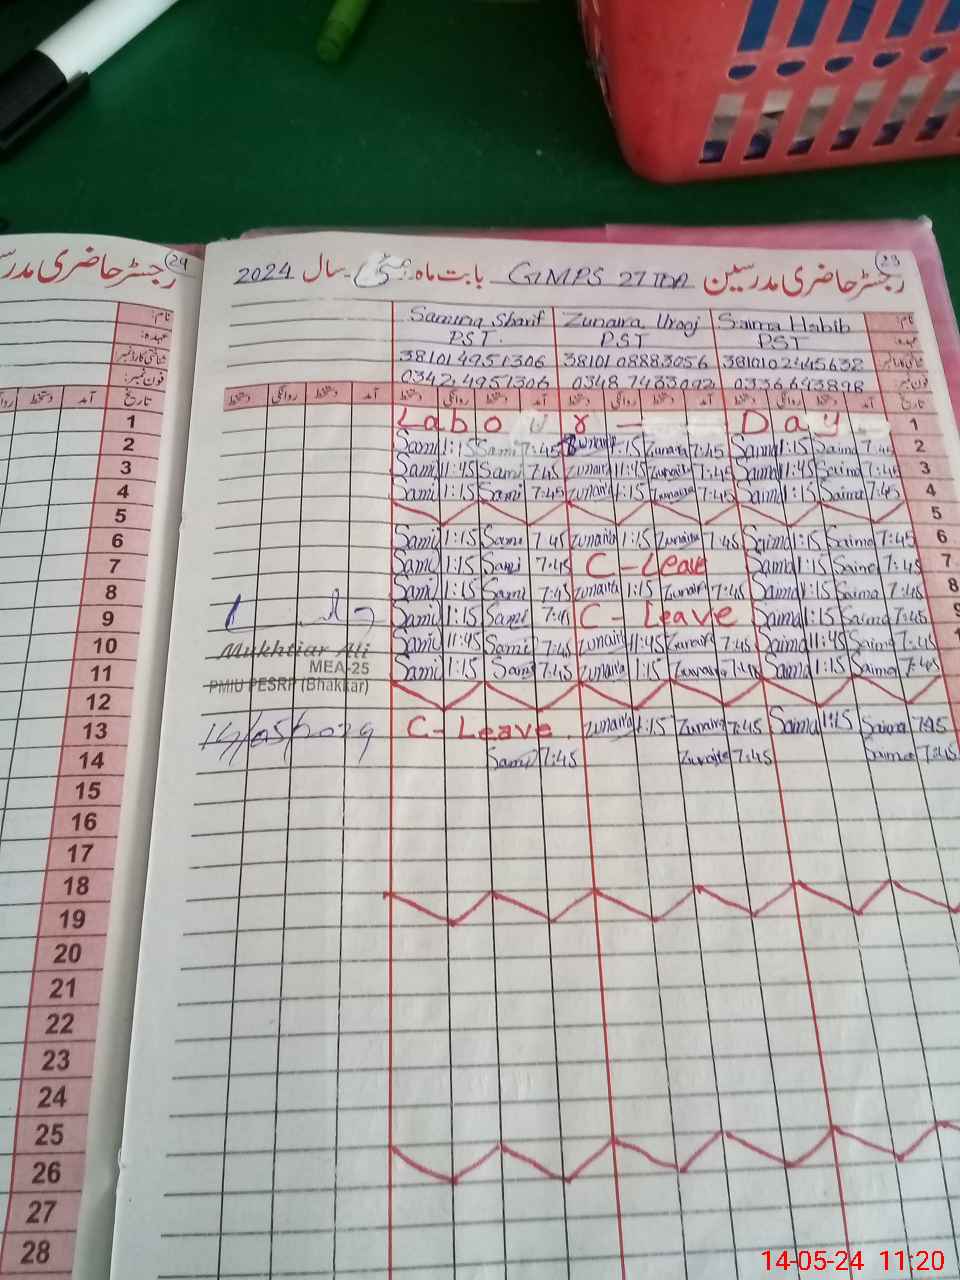 24
رجسٹر حاضری مدرسین GMPS 27 TDA بابت ماہ مئی سال 2024
23
نام: Samina Sharif Zunaira Urooj Saima Habib
عہدہ: PST. PST PST
شناختی کارڈ نمبر 38101 4951306 38101 08883056 38101 02445632
فون نمبر: 0342 4951306 0348 7483092 0336 643898
تاریخ آمد دستخط روانگی دستخط آمد دستخط روانگی دستخط آمد دستخط روانگی دستخط آمد دستخط روانگی دستخط
1 Labour - Day 1
2 Sami 1:15 Sami 7:45 Zunaira 1:15 Zunaira 7:45 Saima 1:15 Saima 7:45 2
3 Sami 11:45 Sami 7:45 Zunaira 11:45 Zunaira 7:45 Saima 11:45 Saima 7:45 3
4 Sami 1:15 Sami 7:45 Zunaira 1:15 Zunaira 7:45 Saima 1:15 Saima 7:45 4
5 5
6 Sami 1:15 Sami 7:45 Zunaira 1:15 Zunaira 7:45 Saima 1:15 Saima 7:45 6
7 Sami 1:15 Sami 7:45 C-Leave Saima 1:15 Saima 7:45 7
8 Sami 1:15 Sami 7:45 Zunaira 1:15 Zunaira 7:45 Saima 1:15 Saima 7:45 8
9 Sami 1:15 Sami 7:45 C-Leave Saima 1:15 Saima 7:45 9
10 Mukhtiar Ali Sami 11:45 Sami 7:45 Zunaira 11:45 Zunaira 7:45 Saima 11:45 Saima 7:45
MEA-25
11 Sami 1:15 Sami 7:45 Zunaira 1:15 Zunaira 7:45 Saima 1:15 Saima 7:45
PMIU PESRP (Bhakkar)
12
13 14/05/2024 C-Leave. Zunaira 1:15 Zunaira 7:45 Saima 1:15 Saima 7:45
14 Sami 7:45 Zunaira 7:45 Saima 7:45
15
16
17
18
19
20
21
22
23
24
25
26
27
28
14-05-24 11:20